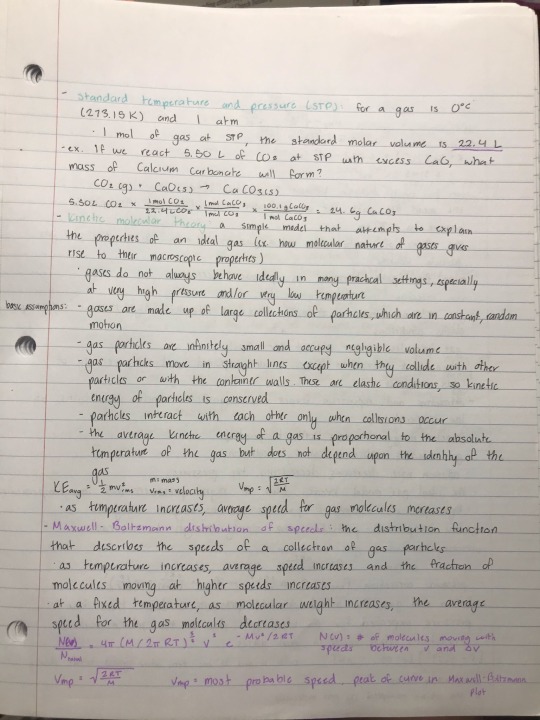 - standard temperature and pressure (STP): for a gas is 0°C
(273.15K) and 1 atm
· 1 mol of gas at STP, the standard molar volume is 22.4 L
-ex. If we react 5.50 L of CO2 at STP with excess CaO, what
mass of Calcium Carbonate will form?
CO2(g) + CaO(s) → CaCO3(s)
5.50L CO2 × 1mol CO2 / 22.4L CO2 × 1mol CaCO3 / 1mol CO2 × 100.1g CaCO3 / 1 mol CaCO3 = 24.6g CaCO3
- Kinetic molecular theory: a simple model that attempts to explain
the properties of an ideal gas (ex how molecular nature of gases gives
rise to their macroscopic properties)
· gases do not always behave ideally in many practical settings, especially
at very high pressure and/or very low temperature
basic assumptions: - gases are made up of large collections of particles, which are in constant, random
motion
- gas particles are infinitely small and occupy negligible volume
- gas particles move in straight lines except when they collide with other
particles or with the container walls. These are elastic conditions, so kinetic
energy of particles is conserved
- particles interact with each other only when collisions occur
- the average kinetic energy of a gas is proportional to the absolute
temperature of the gas but does not depend upon the identity of the
gas
KEavg = 1/2 mv²rms m=mass vrms=velocity Vmp = √2RT/M
· as temperature increases, average speed for gas molecules increases
- Maxwell-Boltzmann distribution of speeds: the distribution function
that describes the speeds of a collection of gas particles
· as temperature increases, average speed increases and the fraction of
molecules moving at higher speeds increases
· at a fixed temperature, as molecular weight increases, the average
speed for the gas molecules decreases
N(v)/Ntotal = 4π (M/2πRT)^3/2 v² e^-Mv²/2RT N(v) = # of molecules moving with
speeds between v and Δv
Vmp = √2RT/M Vmp = most probable speed, peak of curve in Maxwell-Boltzmann
plot